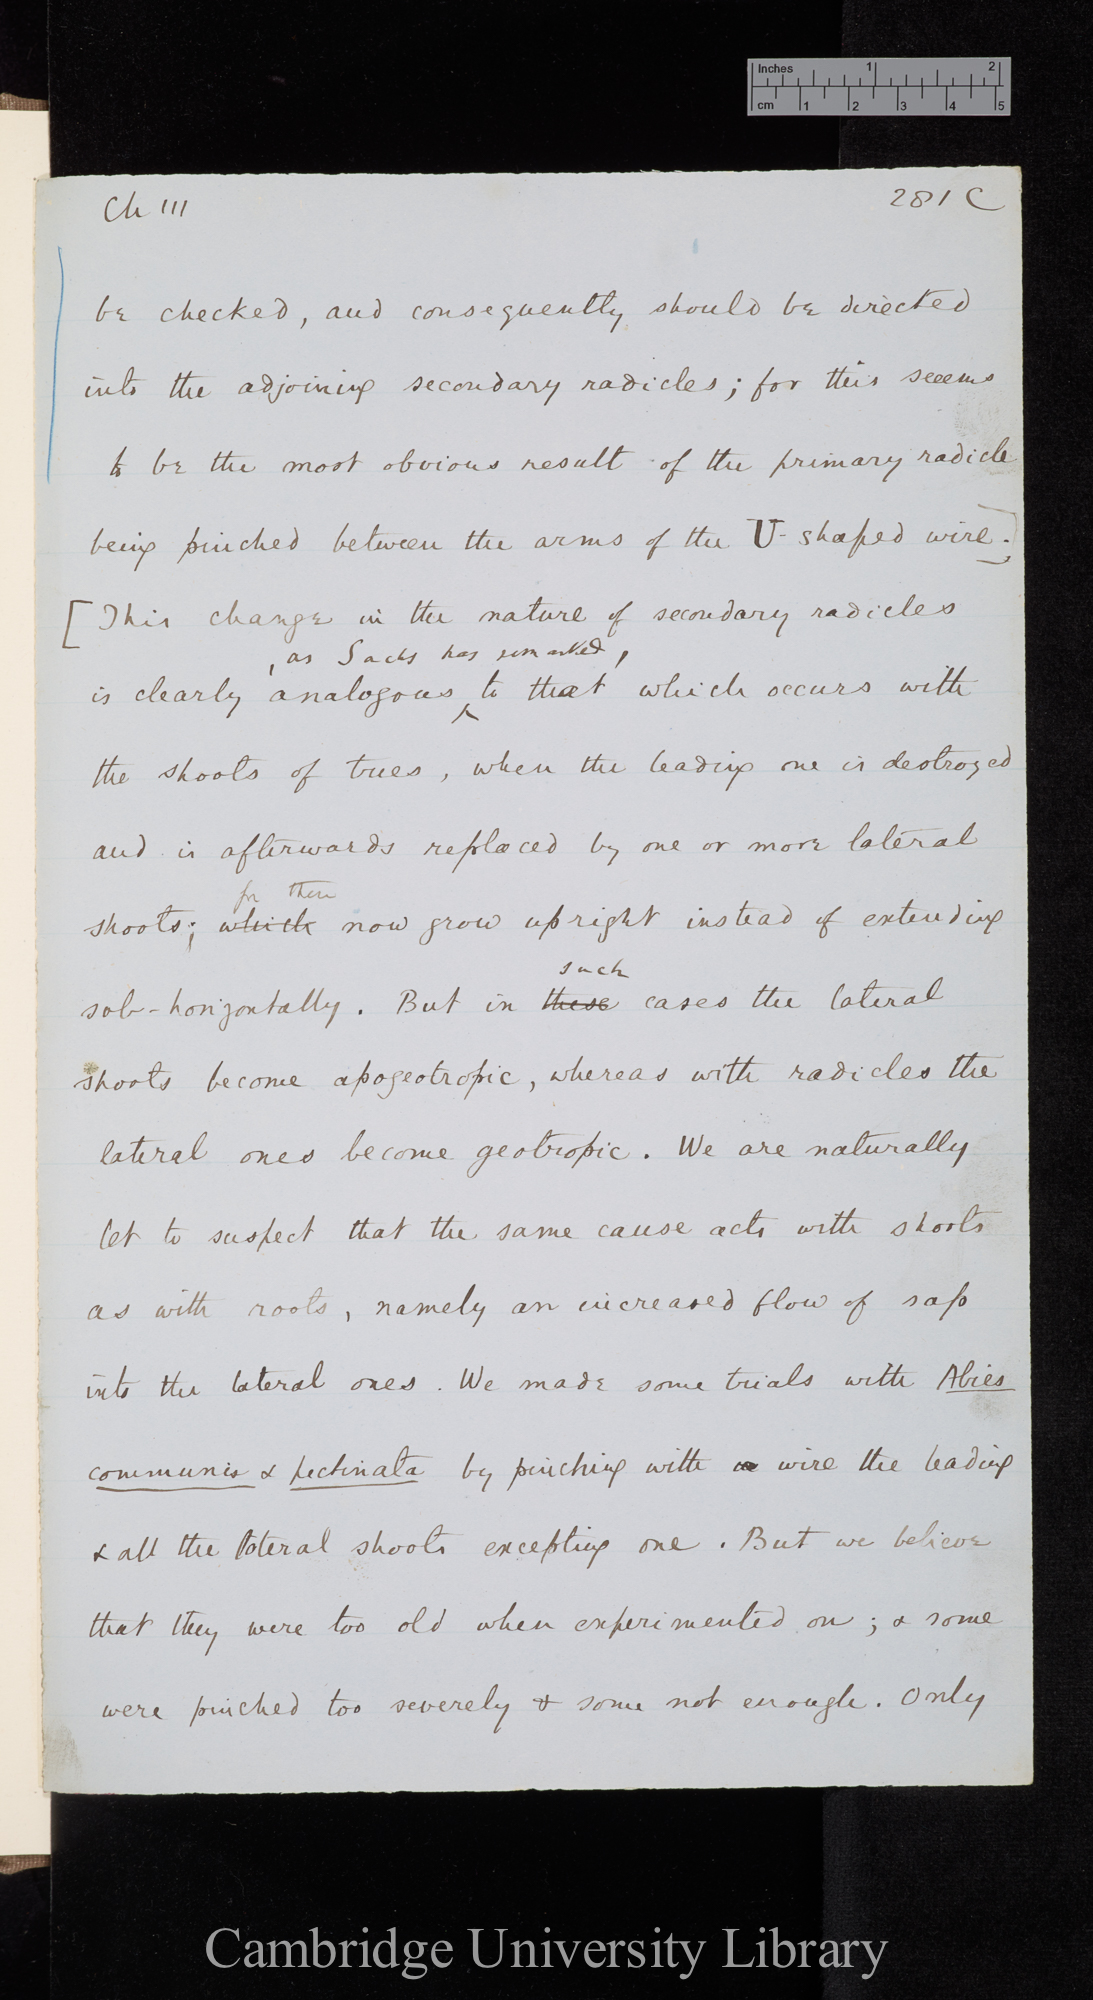 Inches 1 2
cm 1 2 3 4 5
Ch III 281 C
be checked, and consequently should be directed
into the adjoining secondary radicles; for this seeems
to be the most obvious result of the primary radicle
being pinched between the arms of the U-shaped wire.]
[This change in the nature of secondary radicles
, as Sachs has remarked,
is clearly analogous to that which occurs with
the shoots of trees, when the leading one is destroyed
and is afterwards replaced by one or more lateral
for these
shoots; which now grow upright instead of extending
such
sub-horizontally. But in these cases the lateral
shoots become apogeotropic, whereas with radicles the
lateral ones become geotropic. We are naturally
let to suspect that the same cause acts with shoots
as with roots, namely an increased flow of sap
into the lateral ones. We made some trials with Abies
communis & pectinata by pinching with wire the leading
& all the lateral shoots excepting one. But we believe
that they were too old when experimented on; & some
were pinched too severely & some not enough. Only
Cambridge University Library